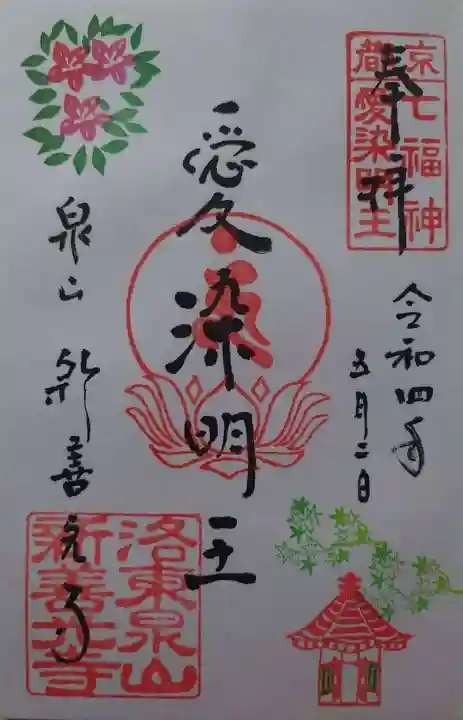 奉拝
京七福神
愛染明王
令和四年
五月二日
愛染明王
泉山 新善光寺
洛東泉山
新善光寺